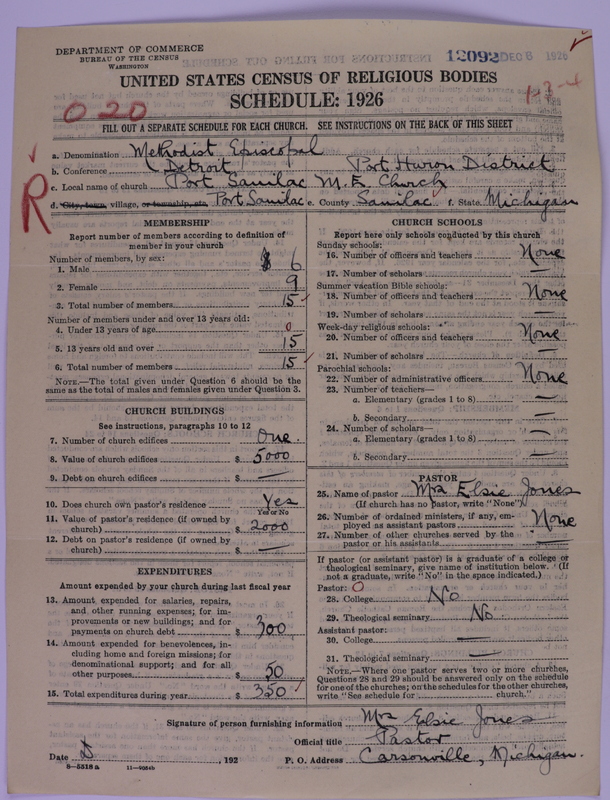 DEPARTMENT OF COMMERCE
BUREAU OF THE CENSUS
WASHINGTON
12092 DEC 8 1926
UNITED STATES CENSUS OF RELIGIOUS BODIES
SCHEDULE: 1926
020
1-7-4
FILL OUT A SEPARATE SCHEDULE FOR EACH CHURCH. SEE INSTRUCTIONS ON THE BACK OF THIS SHEET
R
a. Denomination Methodist Episcopal
b. Conference Detroit Port Huron District
c. Local name of church Port Sanilac M.E. Church
d. City, town, village, or township, etc. Port Sanilac e. County Sanilac f. State Michigan
MEMBERSHIP
Report number of members according to definition of member in your church
Number of members, by sex:
1. Male 6
2. Female 9
3. Total number of members 15
Number of members under and over 13 years old:
4. Under 13 years of age 0
5. 13 years old and over 15
6. Total number of members 15
NOTE.—The total given under Question 6 should be the same as the total of males and females given under Question 3.
CHURCH BUILDINGS
See instructions, paragraphs 10 to 12
7. Number of church edifices One.
8. Value of church edifices $ 5000
9. Debt on church edifices $ —
10. Does church own pastor's residence Yes
Yes or No
11. Value of pastor's residence (if owned by church) $ 2000
12. Debt on pastor's residence (if owned by church) $ —
EXPENDITURES
Amount expended by your church during last fiscal year
13. Amount expended for salaries, repairs, and other running expenses; for improvements or new buildings; and for payments on church debt $ 300
14. Amount expended for benevolences, including home and foreign missions; for denominational support; and for all other purposes $ 50
15. Total expenditures during year $ 350
CHURCH SCHOOLS
Report here only schools conducted by this church
Sunday schools:
16. Number of officers and teachers None
17. Number of scholars —
Summer vacation Bible schools:
18. Number of officers and teachers None
19. Number of scholars —
Week-day religious schools:
20. Number of officers and teachers None
21. Number of scholars —
Parochial schools:
22. Number of administrative officers None
23. Number of teachers—
a. Elementary (grades 1 to 8) —
b. Secondary —
24. Number of scholars—
a. Elementary (grades 1 to 8) —
b. Secondary —
PASTOR
25. Name of pastor Mrs Elsie Jones
(If church has no pastor, write "None")
26. Number of ordained ministers, if any, employed as assistant pastors None
27. Number of other churches served by the pastor or his assistants —
If pastor (or assistant pastor) is a graduate of a college or theological seminary, give name of institution below. (If not a graduate, write "No" in the space indicated.)
Pastor: O
28. College No
29. Theological seminary No
Assistant pastor:
30. College —
31. Theological seminary —
NOTE.—Where one pastor serves two or more churches, Questions 28 and 29 should be answered only on the schedule for one of the churches; on the schedules for the other churches, write "See schedule for church."
Signature of person furnishing information Mrs Elsie Jones
Official title Pastor
Date , 192 P. O. Address Carsonville, Michigan.
8—5318 a